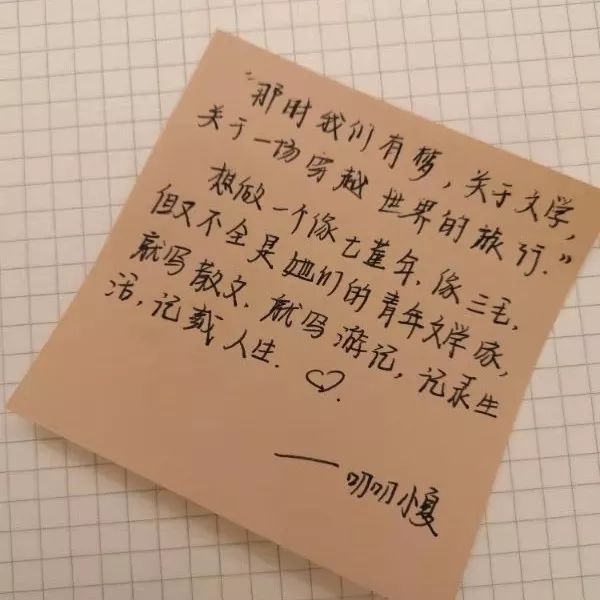 “那时我们有梦，关于文学，
关于一场穿越世界的旅行.”
想做一个像七堇年.像三毛.
但又不全是她们的青年文学家，
就写散文.就写游记，记录生
活，记载人生.♡.
——叨叨小夏